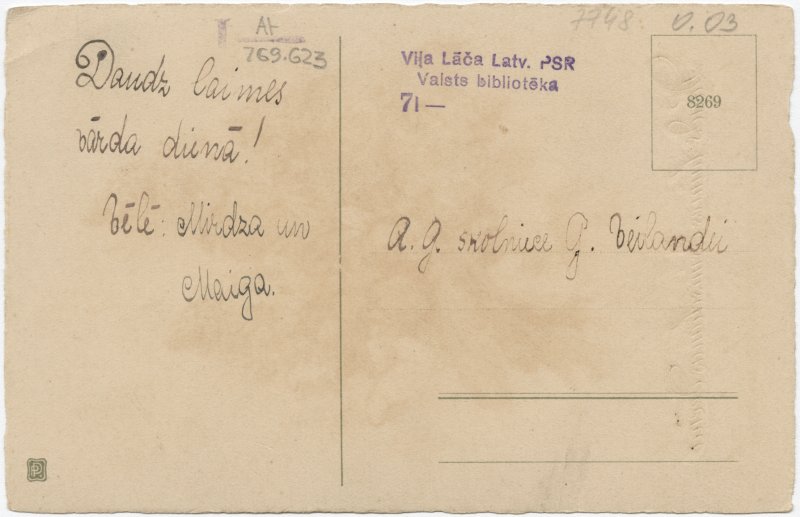 At
769.623
7748.
V. 03
Daudz laimes
vārda dienā!
Vēlē: Mirdza un
Maiga.
Viļa Lāča Latv. PSR
Valsts bibliotēka
71 —
8269
A. g. skolniece G. Veilandei